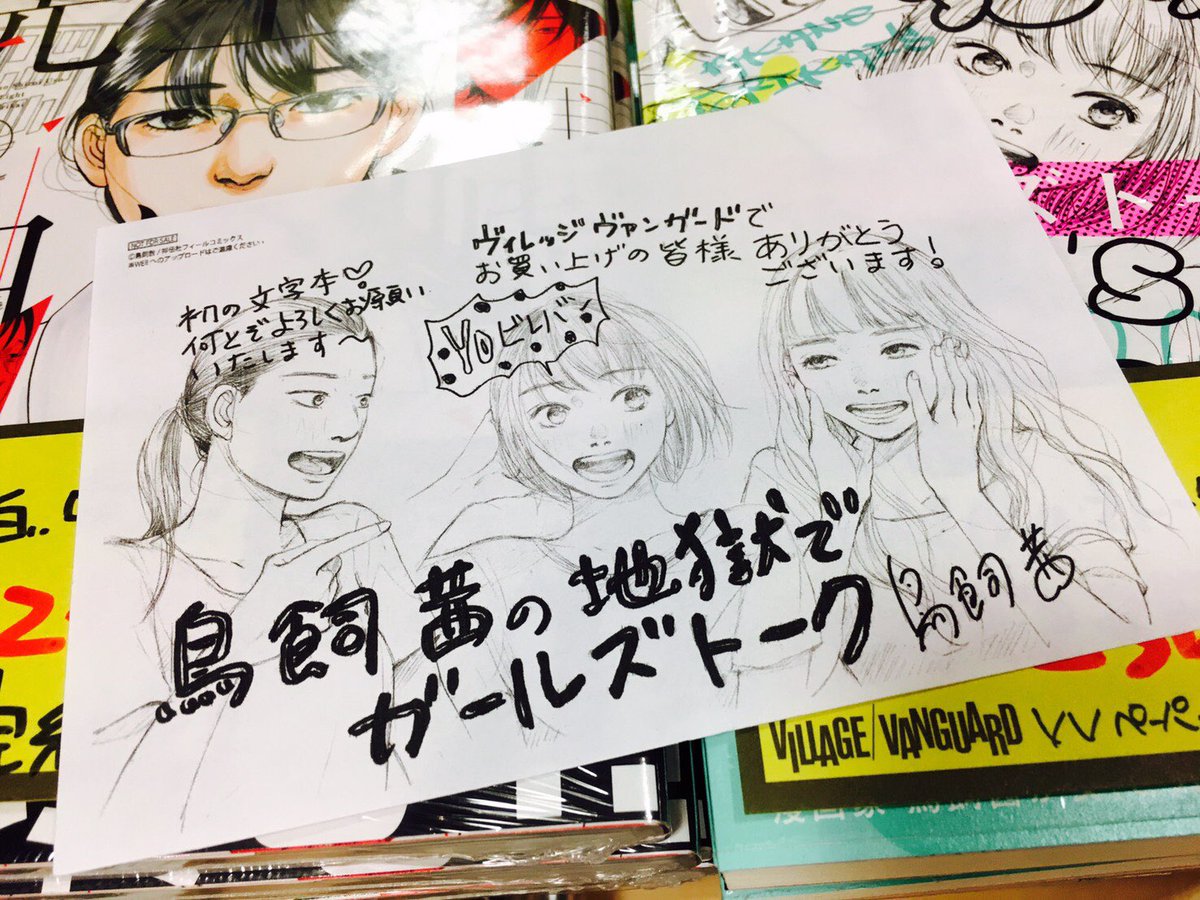 NOT FOR SALE
©鳥飼茜/祥伝社フィールコミックス
※WEBへのアップロードはご遠慮ください
初の文字本♡
何とぞよろしくお願い
いたします〜
ヴィレッジヴァンガードで
お買い上げの皆様 ありがとう
ございます!
YOビレバン
鳥飼茜の地獄で
ガールズトーク
鳥飼茜
ズト
'S
VILLAGE/VANGUARD VVペーパ